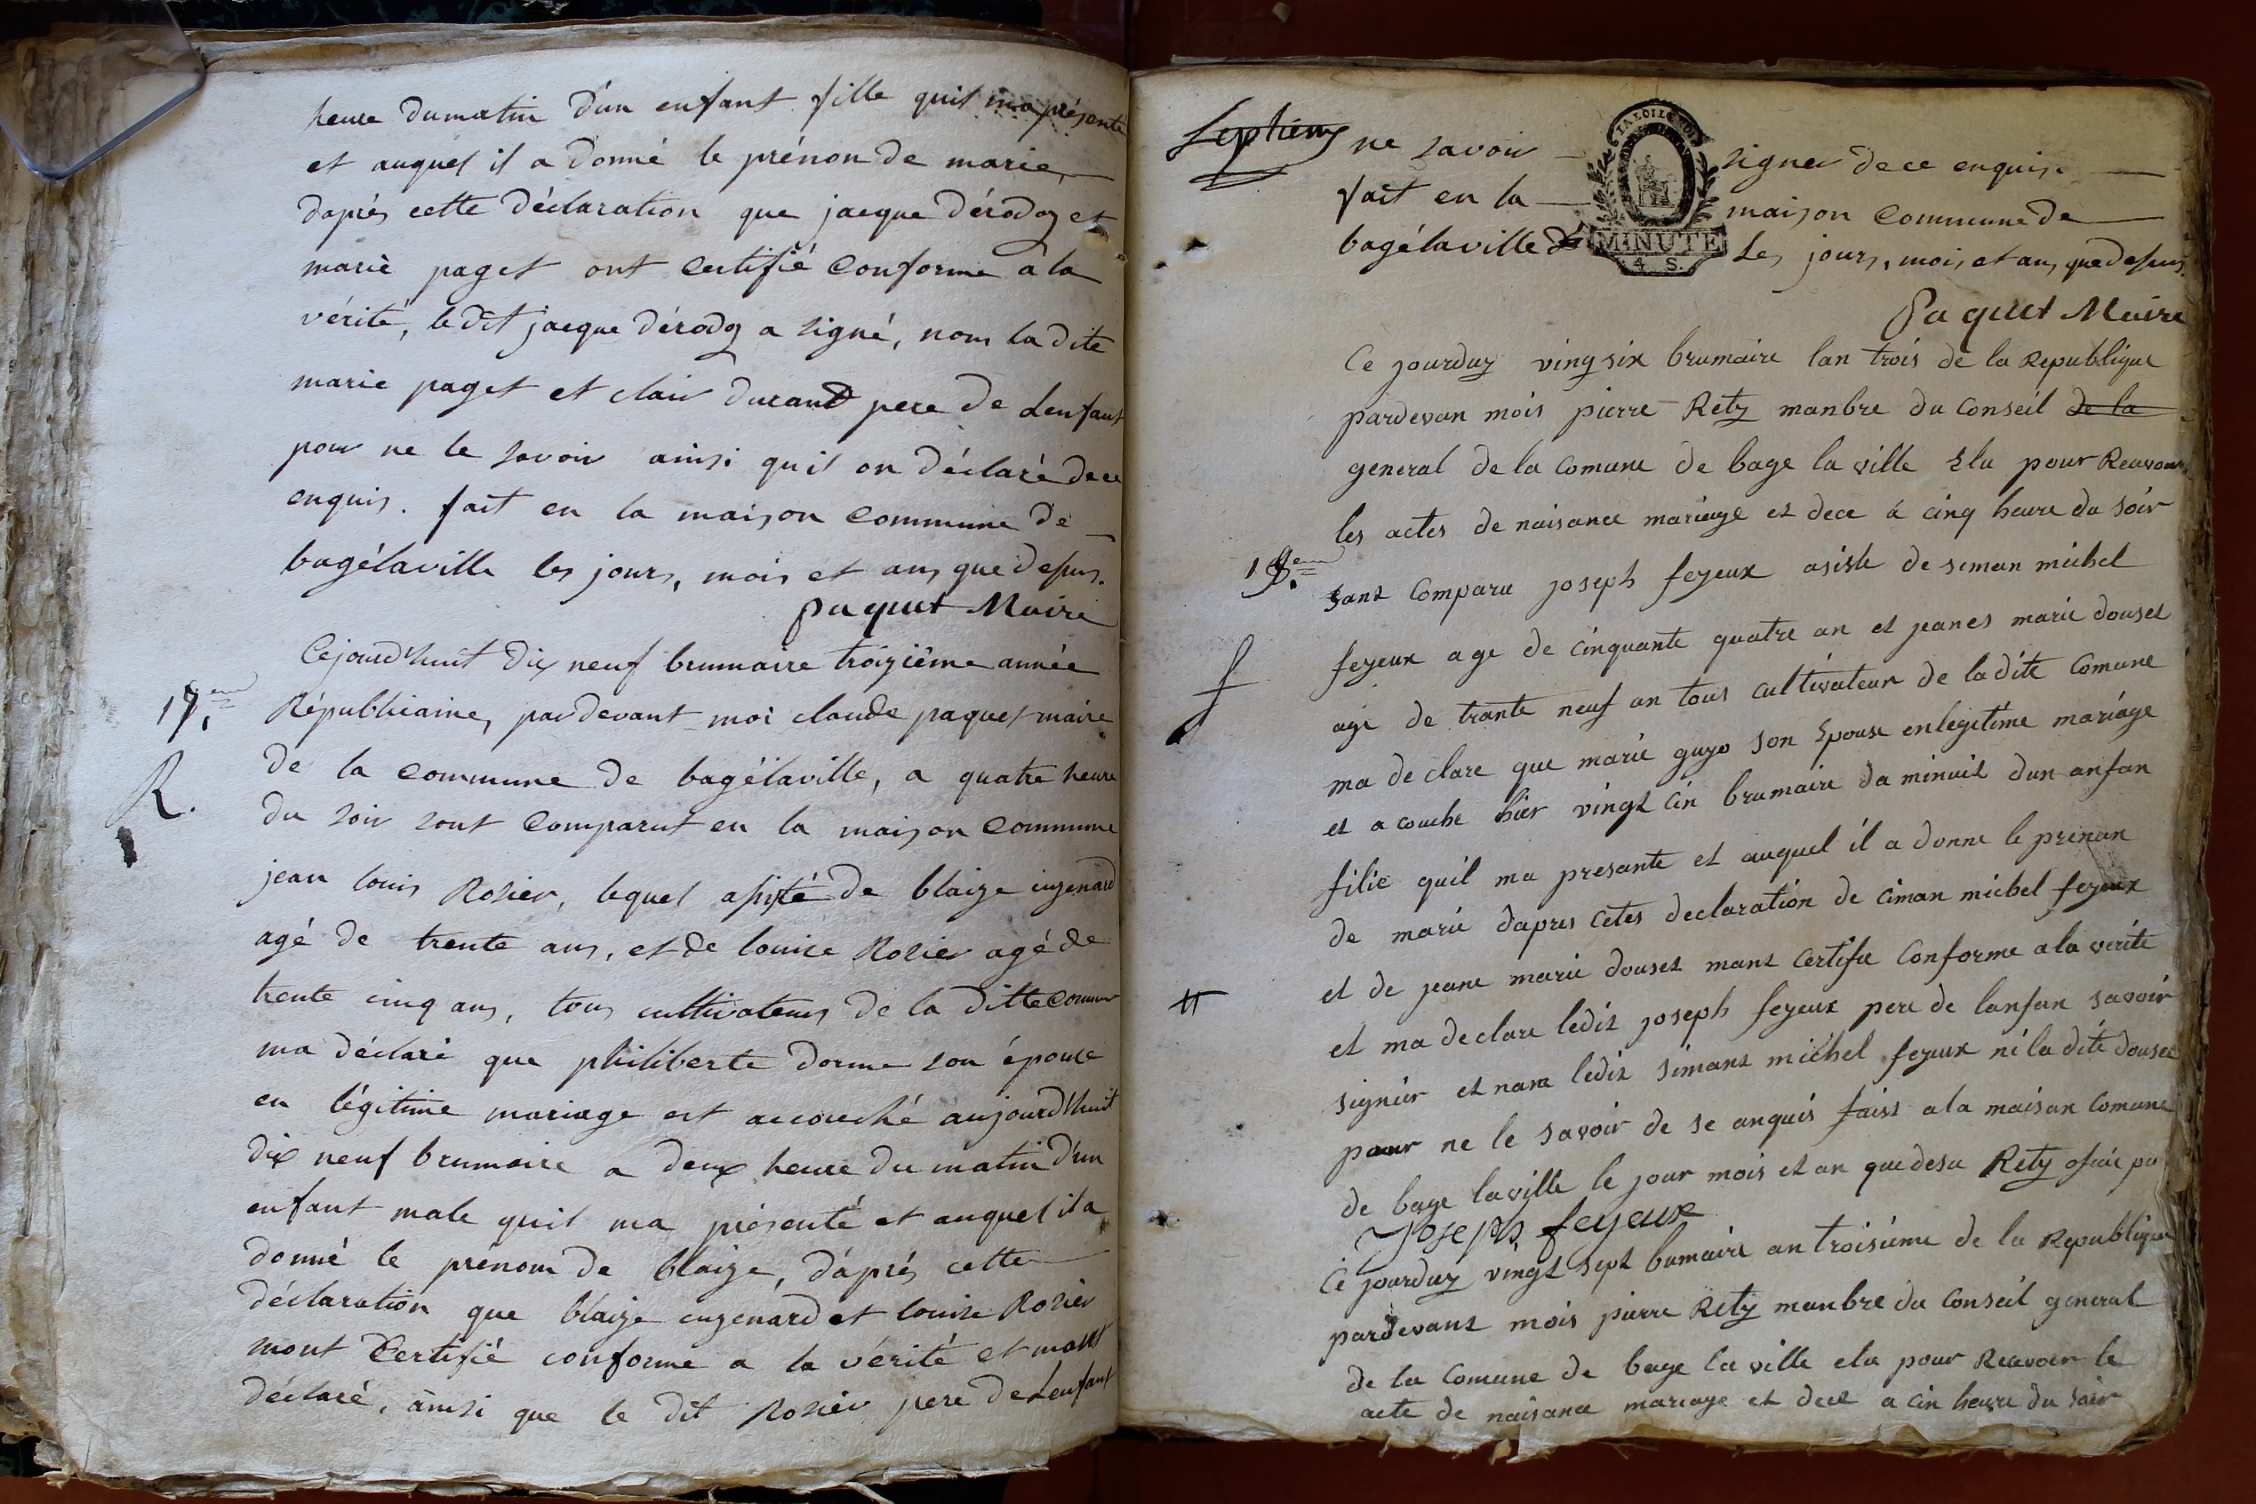 heure dumatin d'un enfant fille quil ma présenté
et auquel il a donné le prénon de marie,
daprès cette déclaration que jacque dérodoz et
mariè paget ont certifié conforme à la
vérité, ledit jacque dérodoz a signé, nom la dite
marie paget et clair durand pere de Lenfant
pour ne le savoir ainsi quil on déclaré dece
enquis. fait en la maison commune de
bagélaville les jours, mois et ans que depus.
paquet Maire
Cejourd'huit dix neuf brumaire troizième année
17.eme Républicaine, pardevant moi claude paquet maire
R. de la commune de bagélaville, a quatre heure
du soir sont comparut en la maison commune
jean louis Rosier, lequel assisté de blaize
agé de trente ans, et de louise Rosier agé de
trente cinq ans, tous cultivateurs de la ditte commune
ma déclaré que philiberte dorme son épouse
en légitime mariage est accouché aujourd'huit
dix neuf brumaire a deux heure du matin d'un
enfant male quil ma présenté et auquel il a
donné le prénom de blaize, d'après cette
déclaration que blaize et louise Rosier
mont certifié conforme a la vérité et mont
déclaré, ainsi que le dit Rosier pere deLenfant
Septieme
ne savoir signer dece enquis.
fait en la maison commune de
bagélaville Les jours, mois et ans que depus.
LA LOI LE ROI
MINUTE
4 S.
Paquet Maire
Ce jourduy vingsix brumaire lan trois de la Republique
pardevan mois pierre Rety manbre du Conseil de la
general de la Comune de bage la ville Elu pour Reuvoir
les actes de naisance mariage et dece à cinq heure du soir
18.eme sont Comparu joseph feyeux asiste de siman michel
f feyeux age de cinquante quatre an et jeanes marie douset
agé de trante neuf an tous cultivateur de ladite Comune
ma declare que marie guyo son Epouse enlegitime mariage
et a couche hier vingt cin brumaire da minuit dun anfan
filie quil ma presante et auquel il a donne le prenan
de marie dapres cetes declaration de ciman michel feyeux
et de jeane marie douset mant certifie Conforme a la verite
# et ma declare ledit joseph feyeux pere de lanfan savoir
signier et nam ledit simant michel feyeux ni la dite douset
pour ne le savoir de se anquis faist a la maison Comune
de bage laville le jour mois et an que desu Rety ofisie pu
Joseph feyeux
Ce jourduy vingt sept bumaire an troisieme de la Republique
pardevant mois pierre Rety manbre du Conseil general
de la Comune de bage la ville elu pour Recevoir le
acte de naisance mariage et dece a cin heure du soir